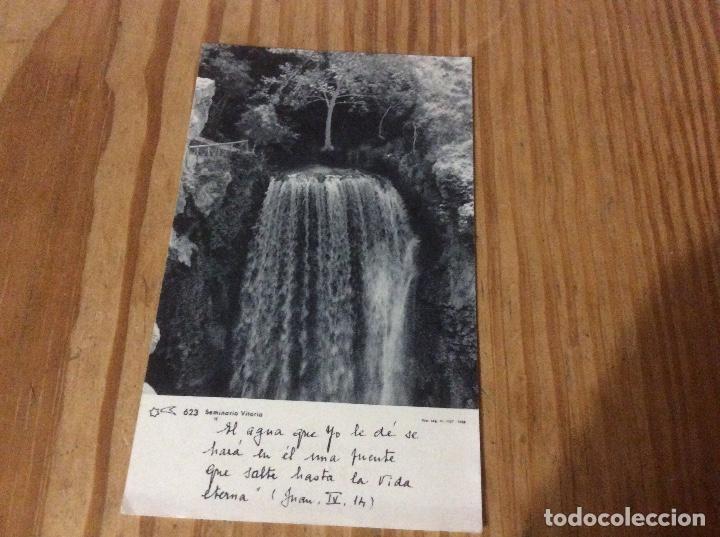 623 Seminario Vitoria
"El agua que Yo le dé se
hará en él una fuente
que salte hasta la vida
eterna" (Juan. IV. 14)
todocoleccion